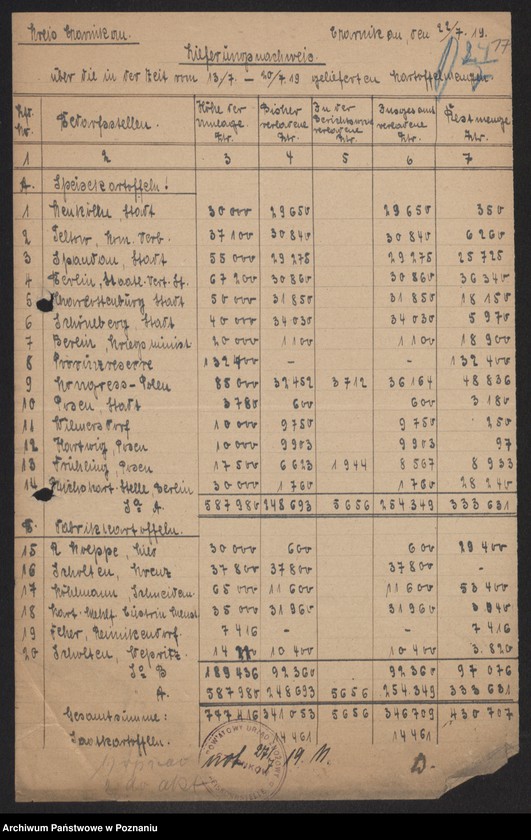 Kreis Czarnikau.
Czarnikau, den 22/7. 19.
Lieferungsnachweis
über die in der Zeit vom 13/7. – 20/7 19 gelieferten Kartoffelmengen.
Lfd. Nr. Bedarfsstellen. Höhe der Umlage Ztr. Bisher verladene Ztr. In der Berichtswoche verladene Ztr. Insgesamt verladene Ztr. Restmenge Ztr.
1 2 3 4 5 6 7
A. Speisekartoffeln:
1 Neukölln, Stadt 30 000 29 650 29 650 350
2 Teltow, Kom. Verb. 37 100 30 840 30 840 6 260
3 Spandau, Stadt 55 000 29 275 29 275 25 725
4 Berlin, Staatl. Vert. St. 67 200 30 860 30 860 36 340
5 Charlottenburg Stadt 50 000 31 850 31 850 18 150
6 Schöneberg, Stadt 40 000 34 030 34 030 5 970
7 Berlin, Kriegsminist 20 000 1 100 1 100 18 900
8 Provinzreserve 132 400 – – 132 400
9 Kongress-Polen 85 000 32 452 3 712 36 164 48 836
10 Posen, Stadt 3 780 600 600 3 180
11 Wilmersdorf 10 000 9 750 9 750 250
12 Hartwig, Posen 10 000 9 903 9 903 97
13 Frühling, Posen 17 500 6 623 1 944 8 567 8 933
14 Reichskart. Stelle, Berlin 30 000 1 760 1 760 28 240
Sa A. 587 980 248 693 5656 254 349 333 631
B. Fabrikkartoffeln.
15 R. Koeppe, hier 30 000 600 600 29 400
16 Scholten, Kreuz 37 800 37 800 37 800 –
17 Köhlmann, Schneidem. 65 000 11 600 11 600 53 400
18 Kart. Mehlf. Cüstrin 35 000 31 960 31 960 3 040
19 Feher, Reinickendorf. 7 416 – – 7 416
20 Scholten, Vepritz. 10 400 10 400 3.820
Sa B 189 436 92 360 92 360 97 076
A. 587 980 248 693 5656 254 349 333 631
Gesamtsumme: 777 416 341 053 5656 346 709 430 707
Saatkartoffeln. 14 461 14 461
27/7 19.
Archiwum Państwowe w Poznaniu